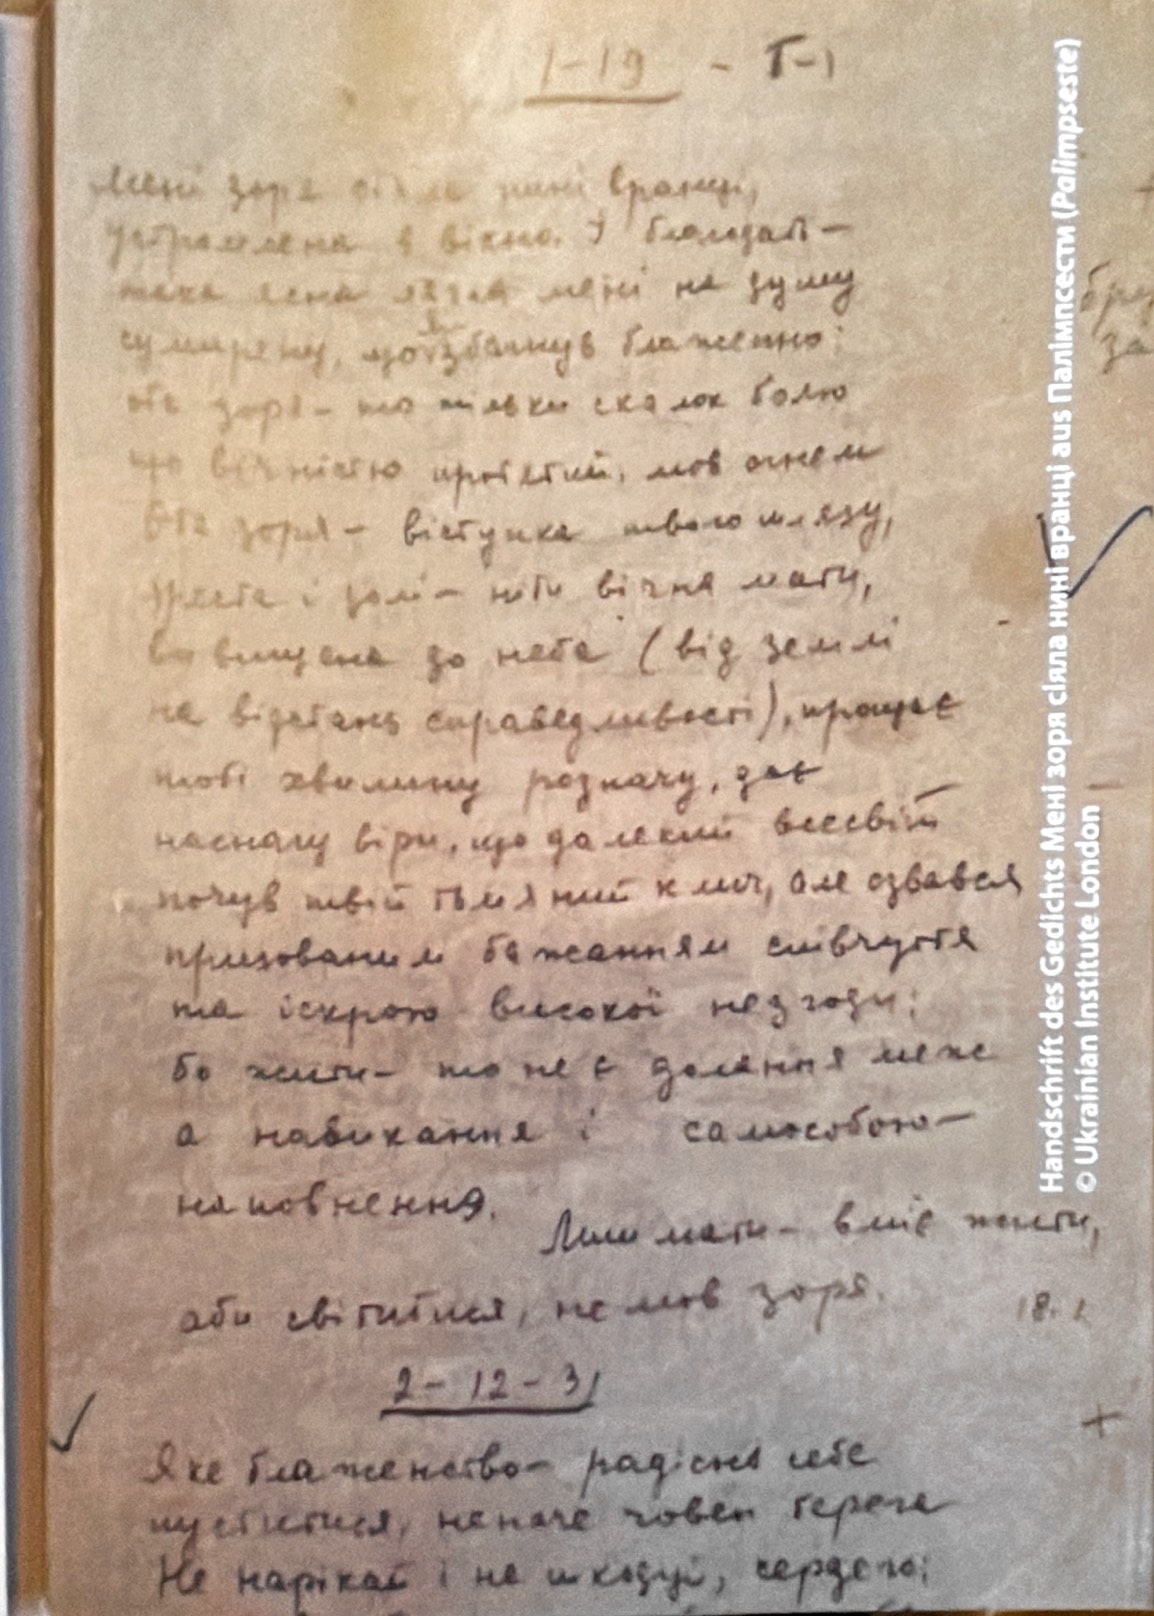 1-19 - Т-1
Мені зоря сіяла нині вранці,
устромлена в вікно. І благодать –
така ясна лягла мені на душу
сумирену, що я збагнув блаженно:
ота зоря – то тільки скалок болю
що вічністю протятий, мов огнем
Ота зоря – вістунка твого шляху,
хреста і долі – ніби вічна мати,
вивищена до неба (від землі
на відстань справедливості), прощає
тобі хвилину розпачу, дає
наснагу віри, що далекий всесвіт
почув твій тьмяний клич, але озвався
прихованим бажанням співчуття
та іскрою високої незгоди:
бо жити – то не є долання меж
а навикання і самособою–
наповнення.
Лиш мати – вміє жити,
аби світитися, немов зоря.
18.1
2-12-31
Яке блаженство – радісно себе
пуститися, неначе човен берега
Не нарікай і не шкодуй, сердего:
Handschrift des Gedichts Мені зоря сіяла нині вранці aus Палімпсести (Palimpseste)
© Ukrainian Institute London